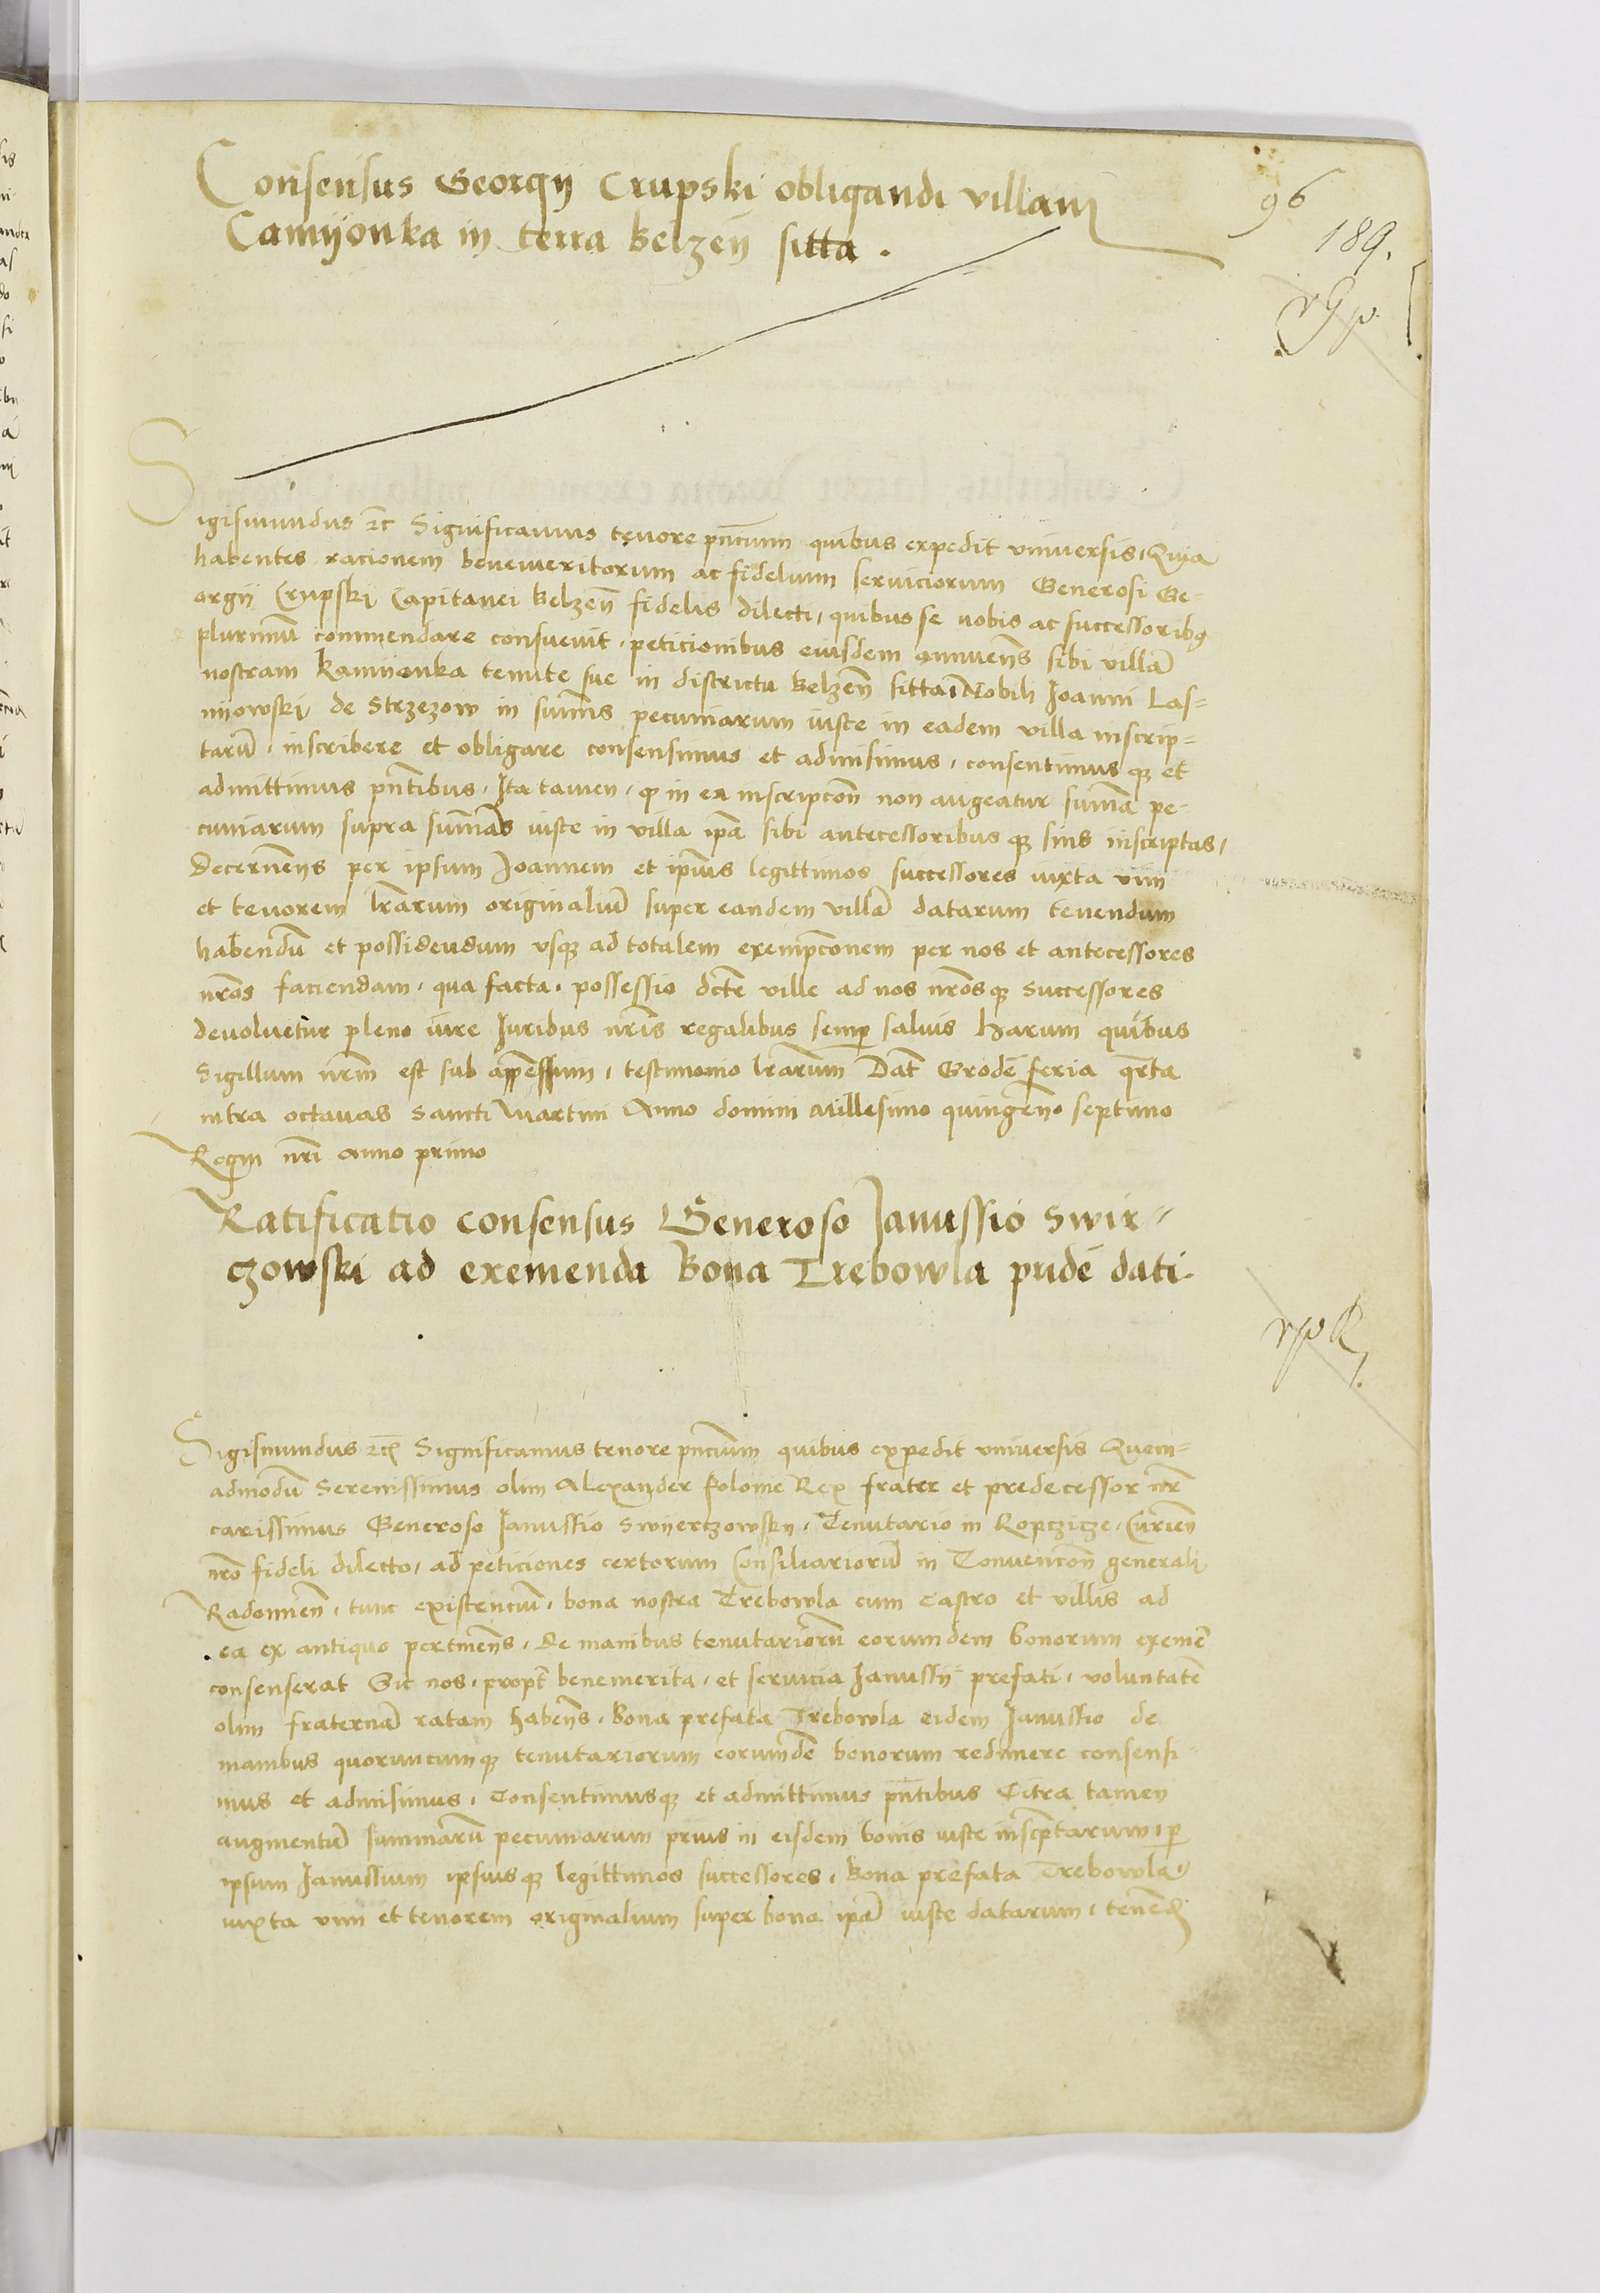 Consensus Georgij Crupski obligandi villam
Camijonka in terra belzen̄ sitta .
96
189.
Sigismundus etc Significamus tenore pn̄cium quibus expedit vniuersis, Quia
habentes racionem benemeritorum ac fidelium seruiciorum Generosi Ge-
orgij Crupski Capitanei belzen̄ fidelis dilecti, quibus se nobis ac successoribus
plurimū commendare consueuit, peticionibus eiusdem annuen̄s sibi villā
nostram kamijonka tenute sue in districtu belzen̄ sittā Nobili Joanni Las-
mijowski de Strzezow in summis pecuniarum iuste in eadem villa inscrip-
tarū, inscribere et obligare consensimus et admisimus, consentimusq; et
admittimus pn̄tibus, Ita tamen, q in ea inscripcōn non augeatur summa pe-
cuniarum supra summas iuste in villa ip̄a sibi antecessoribusq; suis inscriptas,
decernen̄s per ipsum Joannem et ip̄ius legittimos successores iuxta vim
et tenorem lr̄arum originaliū super eandem villā datarum tenendum
habendū et possidendum vsq; ad totalem exempcōnem per nos et antecessores
nr̄os faciendam, qua facta, possessio dcte ville ad nos nr̄osq; successores
deuoluetur pleno iure Juribus nr̄is regalibus semp saluis harum quibus
Sigillum nr̄m est sub appensum, testimonio lr̄arum Dat̄ Grodn̄ feria qr̄ta
intra octauas Sancti Martini Anno domini Millesimo quingen̄o septimo
Regni nr̄i anno primo
Ratificatio consensus Generoso Janussio Swir-
czowski ad exemenda bona Trebowla pridē dati.
Sigismundus etc Significamus tenore pn̄cium quibus expedit vniuersis Quem-
admodū Serenissimus olim Alexander Polonie Rex frater et predecessor nr̄
carissimus Generoso Janussio Swijerczowsky, Tenutario in Ropczicze, Curien̄
nr̄o fideli dilecto, ad peticiones certorum Consiliariorū in Conuencōn generali
Radomien̄, tunc existenciū, bona nostra Trebowla cum Castro et villis ad
ea ex antiquo pertinen̄s, de manibus tenutariorū eorumdem bonorum exemē
consenserat Sic nos, propt̄ benemerita, et seruicia Janussij prefati, voluntatē
olim fraternā ratam haben̄s, bona prefata Trebowla eidem Janussio de
manibus quorumcumq; tenutariorum eorumdē bonorum redimere consensi-
mus et admisimus, Consentimusq; et admittimus pn̄tibus Citra tamen
augmentū summarū pecuniarum prius in eisdem bonis iuste inscptarum, p
ipsum Janussium ipsiusq; legittimos successores, bona prefata Trebowla
iuxta vim et tenorem originalium super bona ip̄a iuste datarum, tenen̄d